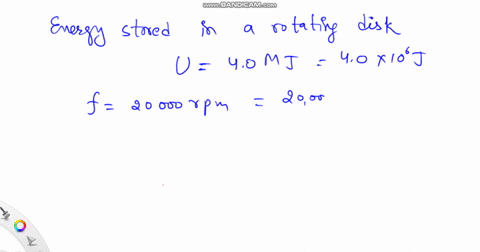 WWW.BANDICAM.COM
Energy stored in a rotating disk
U = 4.0 MJ = 4.0 × 10⁶ J
f = 20000 rpm = 20,00